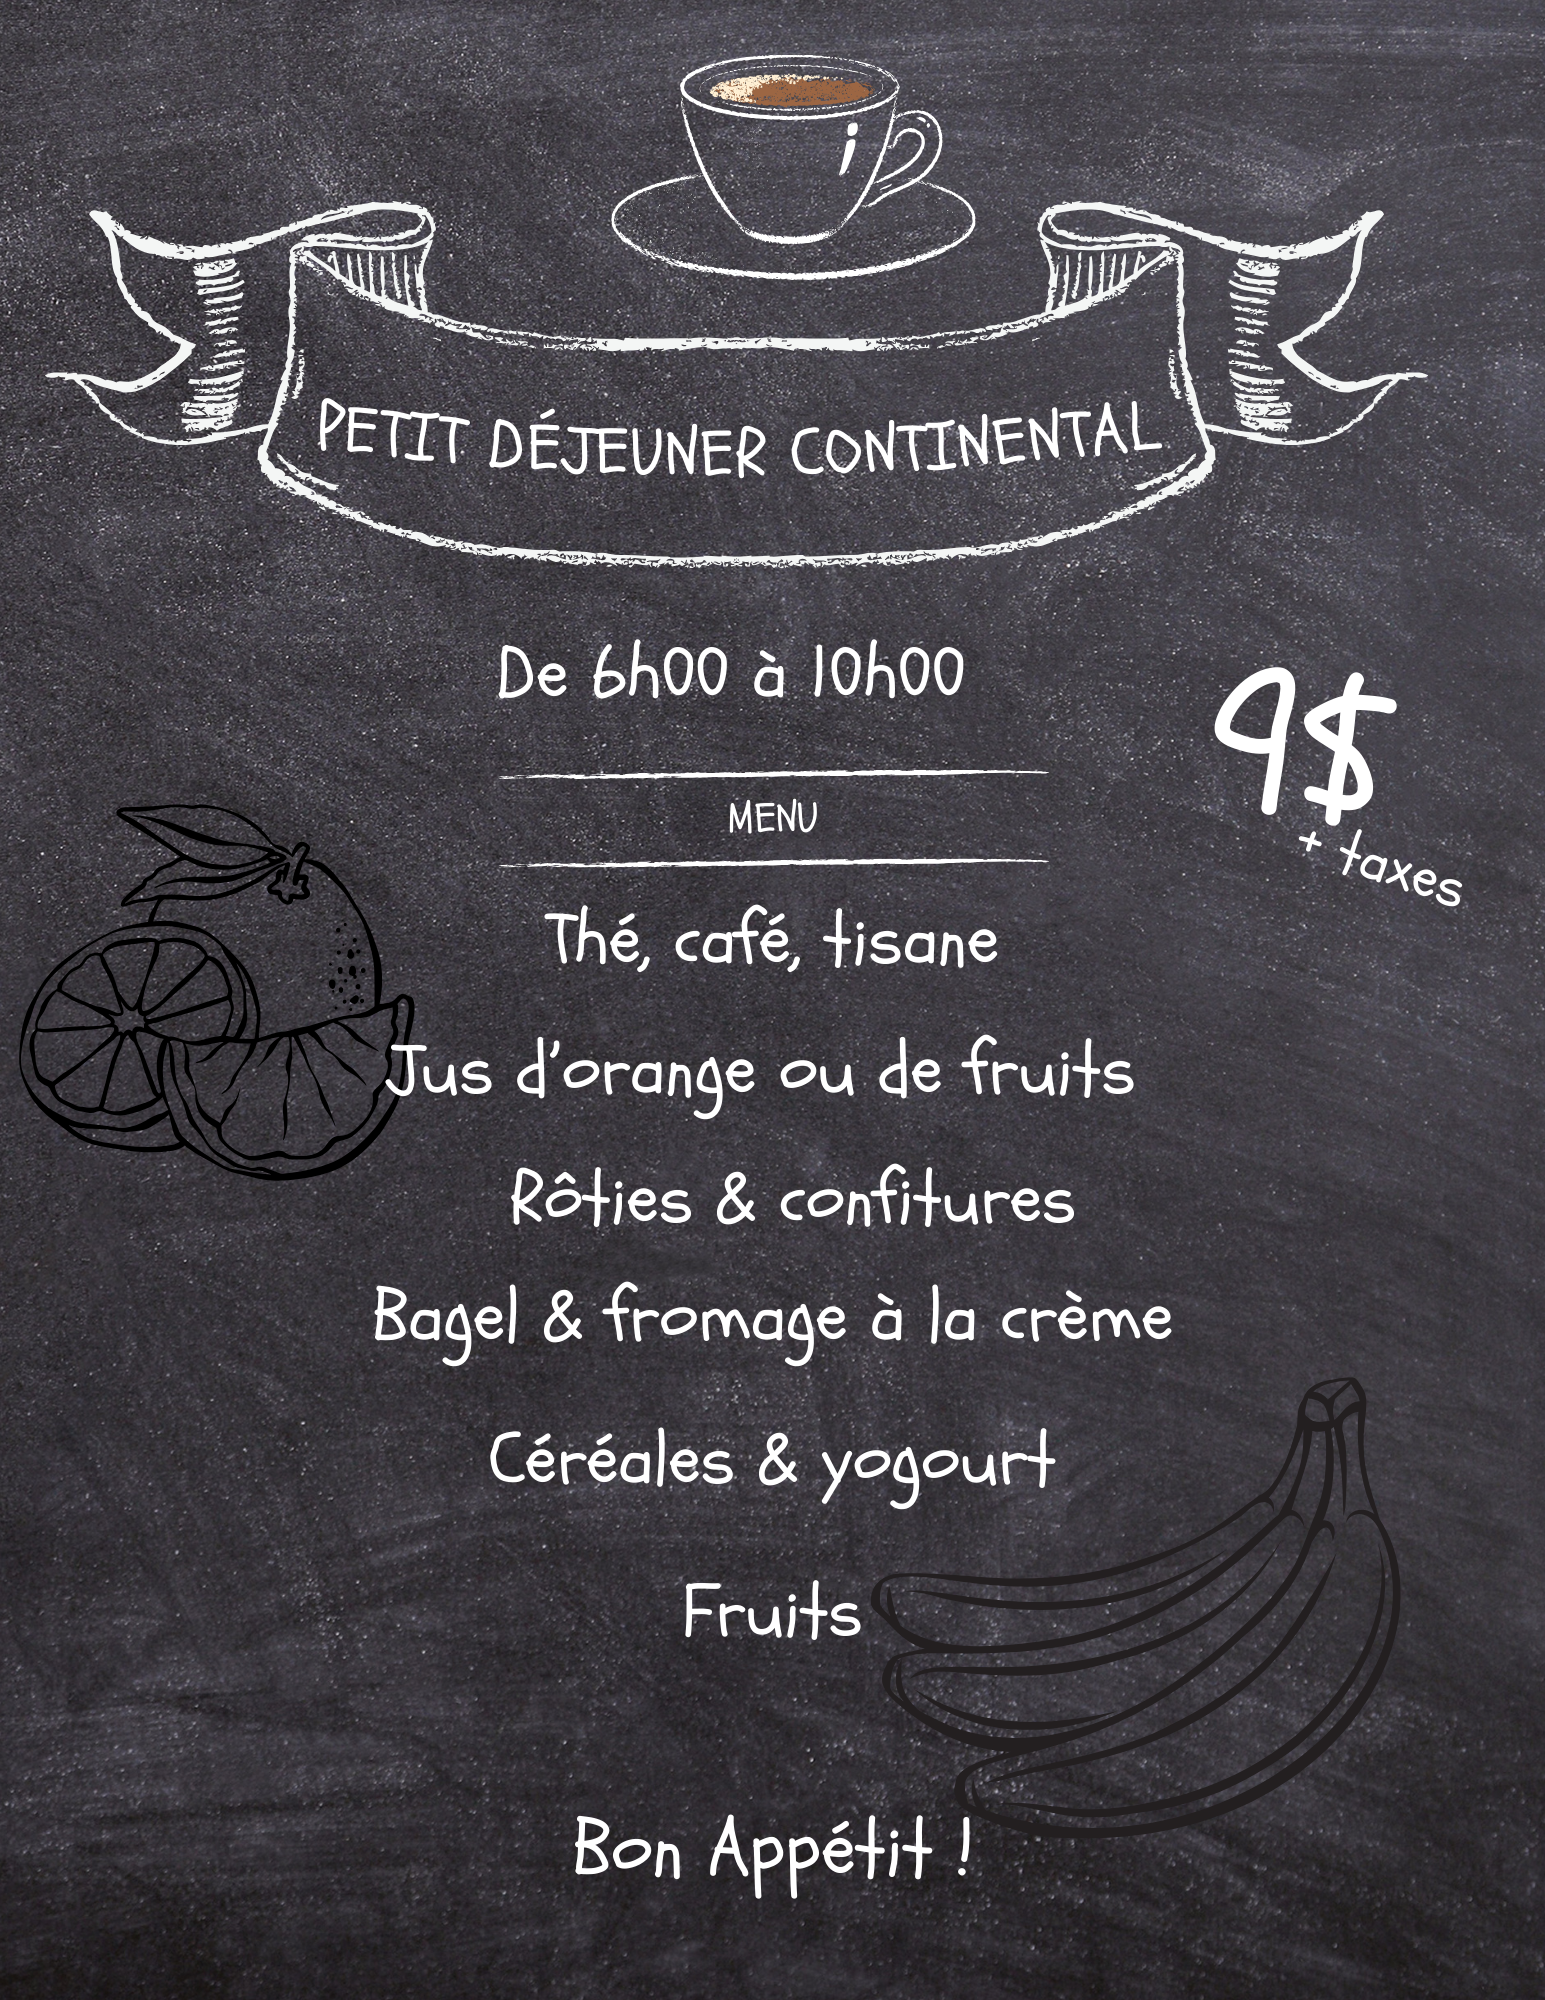 PETIT DÉJEUNER CONTINENTAL
De 6h00 à 10h00
9$
+ taxes
MENU
Thé, café, tisane
Jus d'orange ou de fruits
Rôties & confitures
Bagel & fromage à la crème
Céréales & yogourt
Fruits
Bon Appétit !